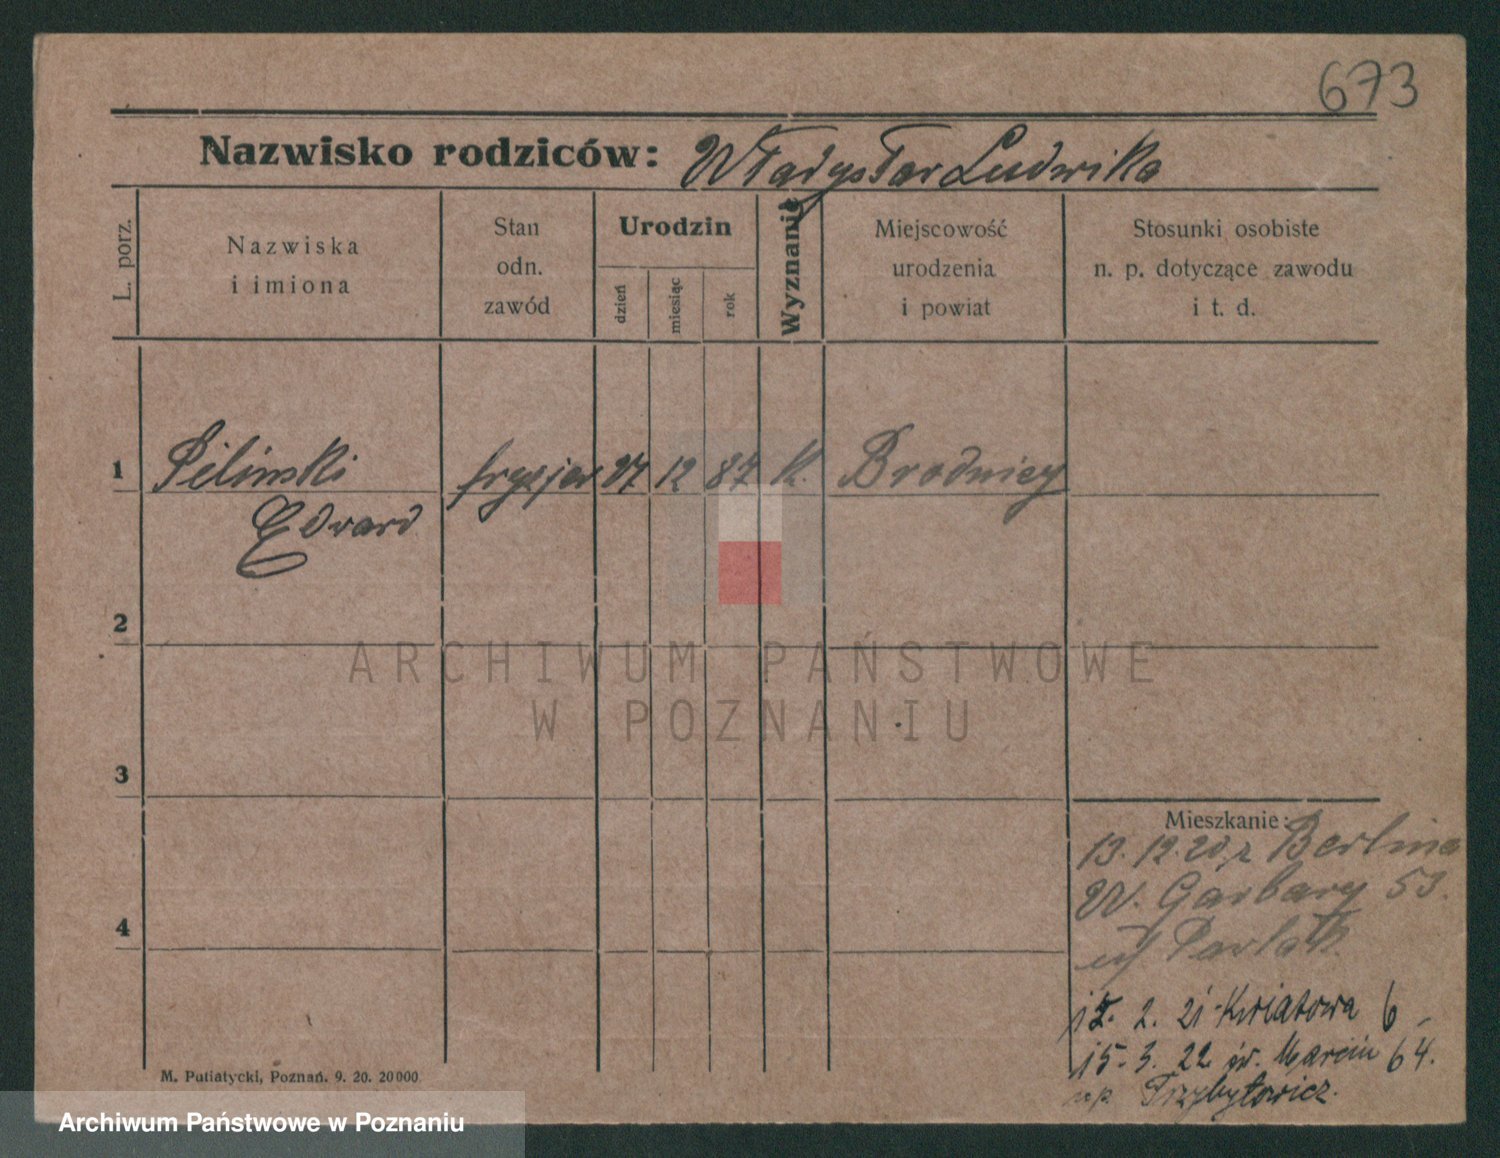 673
Nazwisko rodziców: Władysław Ludwika
L. porz.
Nazwiska
i imiona
Stan
odn.
zawód
Urodzin
dzień
miesiąc
rok
Wyznanie
Miejscowość
urodzenia
i powiat
Stosunki osobiste
n. p. dotyczące zawodu
i t. d.
1 Pilinski fryzjer 27 12 87 K. Brodnicy
Edward
2
ARCHIWUM PAŃSTWOWE
W POZNANIU
3
Mieszkanie:
13.12.20 z Berlina
W. Garbary 53.
4
2. 21 Kwiatowa 6
15. 3. 22 św. Marcin 64.
M. Putiatycki, Poznań. 9. 20. 20000
Archiwum Państwowe w Poznaniu